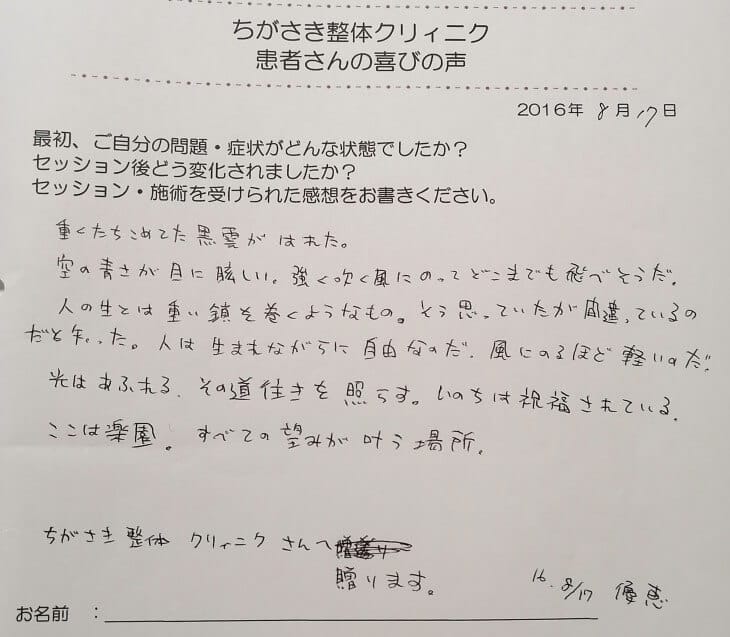 ちがさき整体クリィニク
患者さんの喜びの声
2016年 8月17日
最初、ご自分の問題・症状がどんな状態でしたか？
セッション後どう変化されましたか？
セッション・施術を受けられた感想をお書きください。
重くたちこめてた黒雲がはれた。
空の青さが目に眩しい。強く吹く風にのってどこまでも飛べそうだ。
人の生とは重い鎖を巻くようなもの。そう思っていたが間違っているの
だと知った。人は生まれながらに自由なのだ。風にのるほど軽いのだ。
光はあふれる。その道往きを照らす。いのちは祝福されている。
ここは楽園。すべての望みが叶う場所。
ちがさき整体 クリィニク さんへ
贈ります。
16. 8/17 優恵
お名前 ：